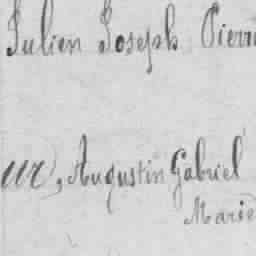 Julien Joseph Pierre
ur, Augustin Gabriel
Marie